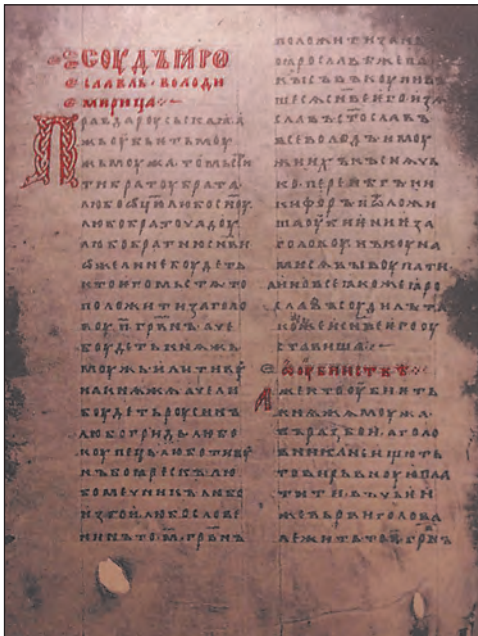 СОУДЪ ꙖРО
СЛАВЛЬ · ВОЛОДИ
МИРИЦА
Правда роуськаꙗ · а
жь оубьить моу
жь моужа · то мьсти
ти братоу брата ·
любо ѡц҃ю любо сноу
любо братоучадоу
любо братню снви
ѡже ли не боудеть
кто ѥго мьстѧ то
положити за голо
воу · п҃ · грвнъ аче
боудеть кнѧжь
моужь или тивоу
на кнѧжа аче ли
боудеть роусинъ
любо гридь любо
коупець любо тивоу
нъ боꙗрескъ лю
бо мечникъ любо
изгои любо слове
нинъ то · м҃ · грвнъ
положити за нь
по ꙗрославѣ же па
кы съвъкоупивъ
шесѧ снве ѥго изѧ
славъ ст҃ославъ
всеволодъ и моу
жи ихъ къснѧчь
ко перенѣгъ ни
кифоръ и ѿложи
ша оубиѥниѥ за
головоу нъ коуна
ми сѧ выкоупати
а ино все ꙗкоже ꙗро
славъ соудилъ та
коже и снве ѥго оу
ставиша
ѡ оубииствѣ
Аже кто оубиѥть
кнѧжѧ моужа ·
въ разбои · а голо
вника не ищють
то вирьвноую плат
тити · въ чьѥи
же вьрви голова
лежить то · п҃ · грвнъ